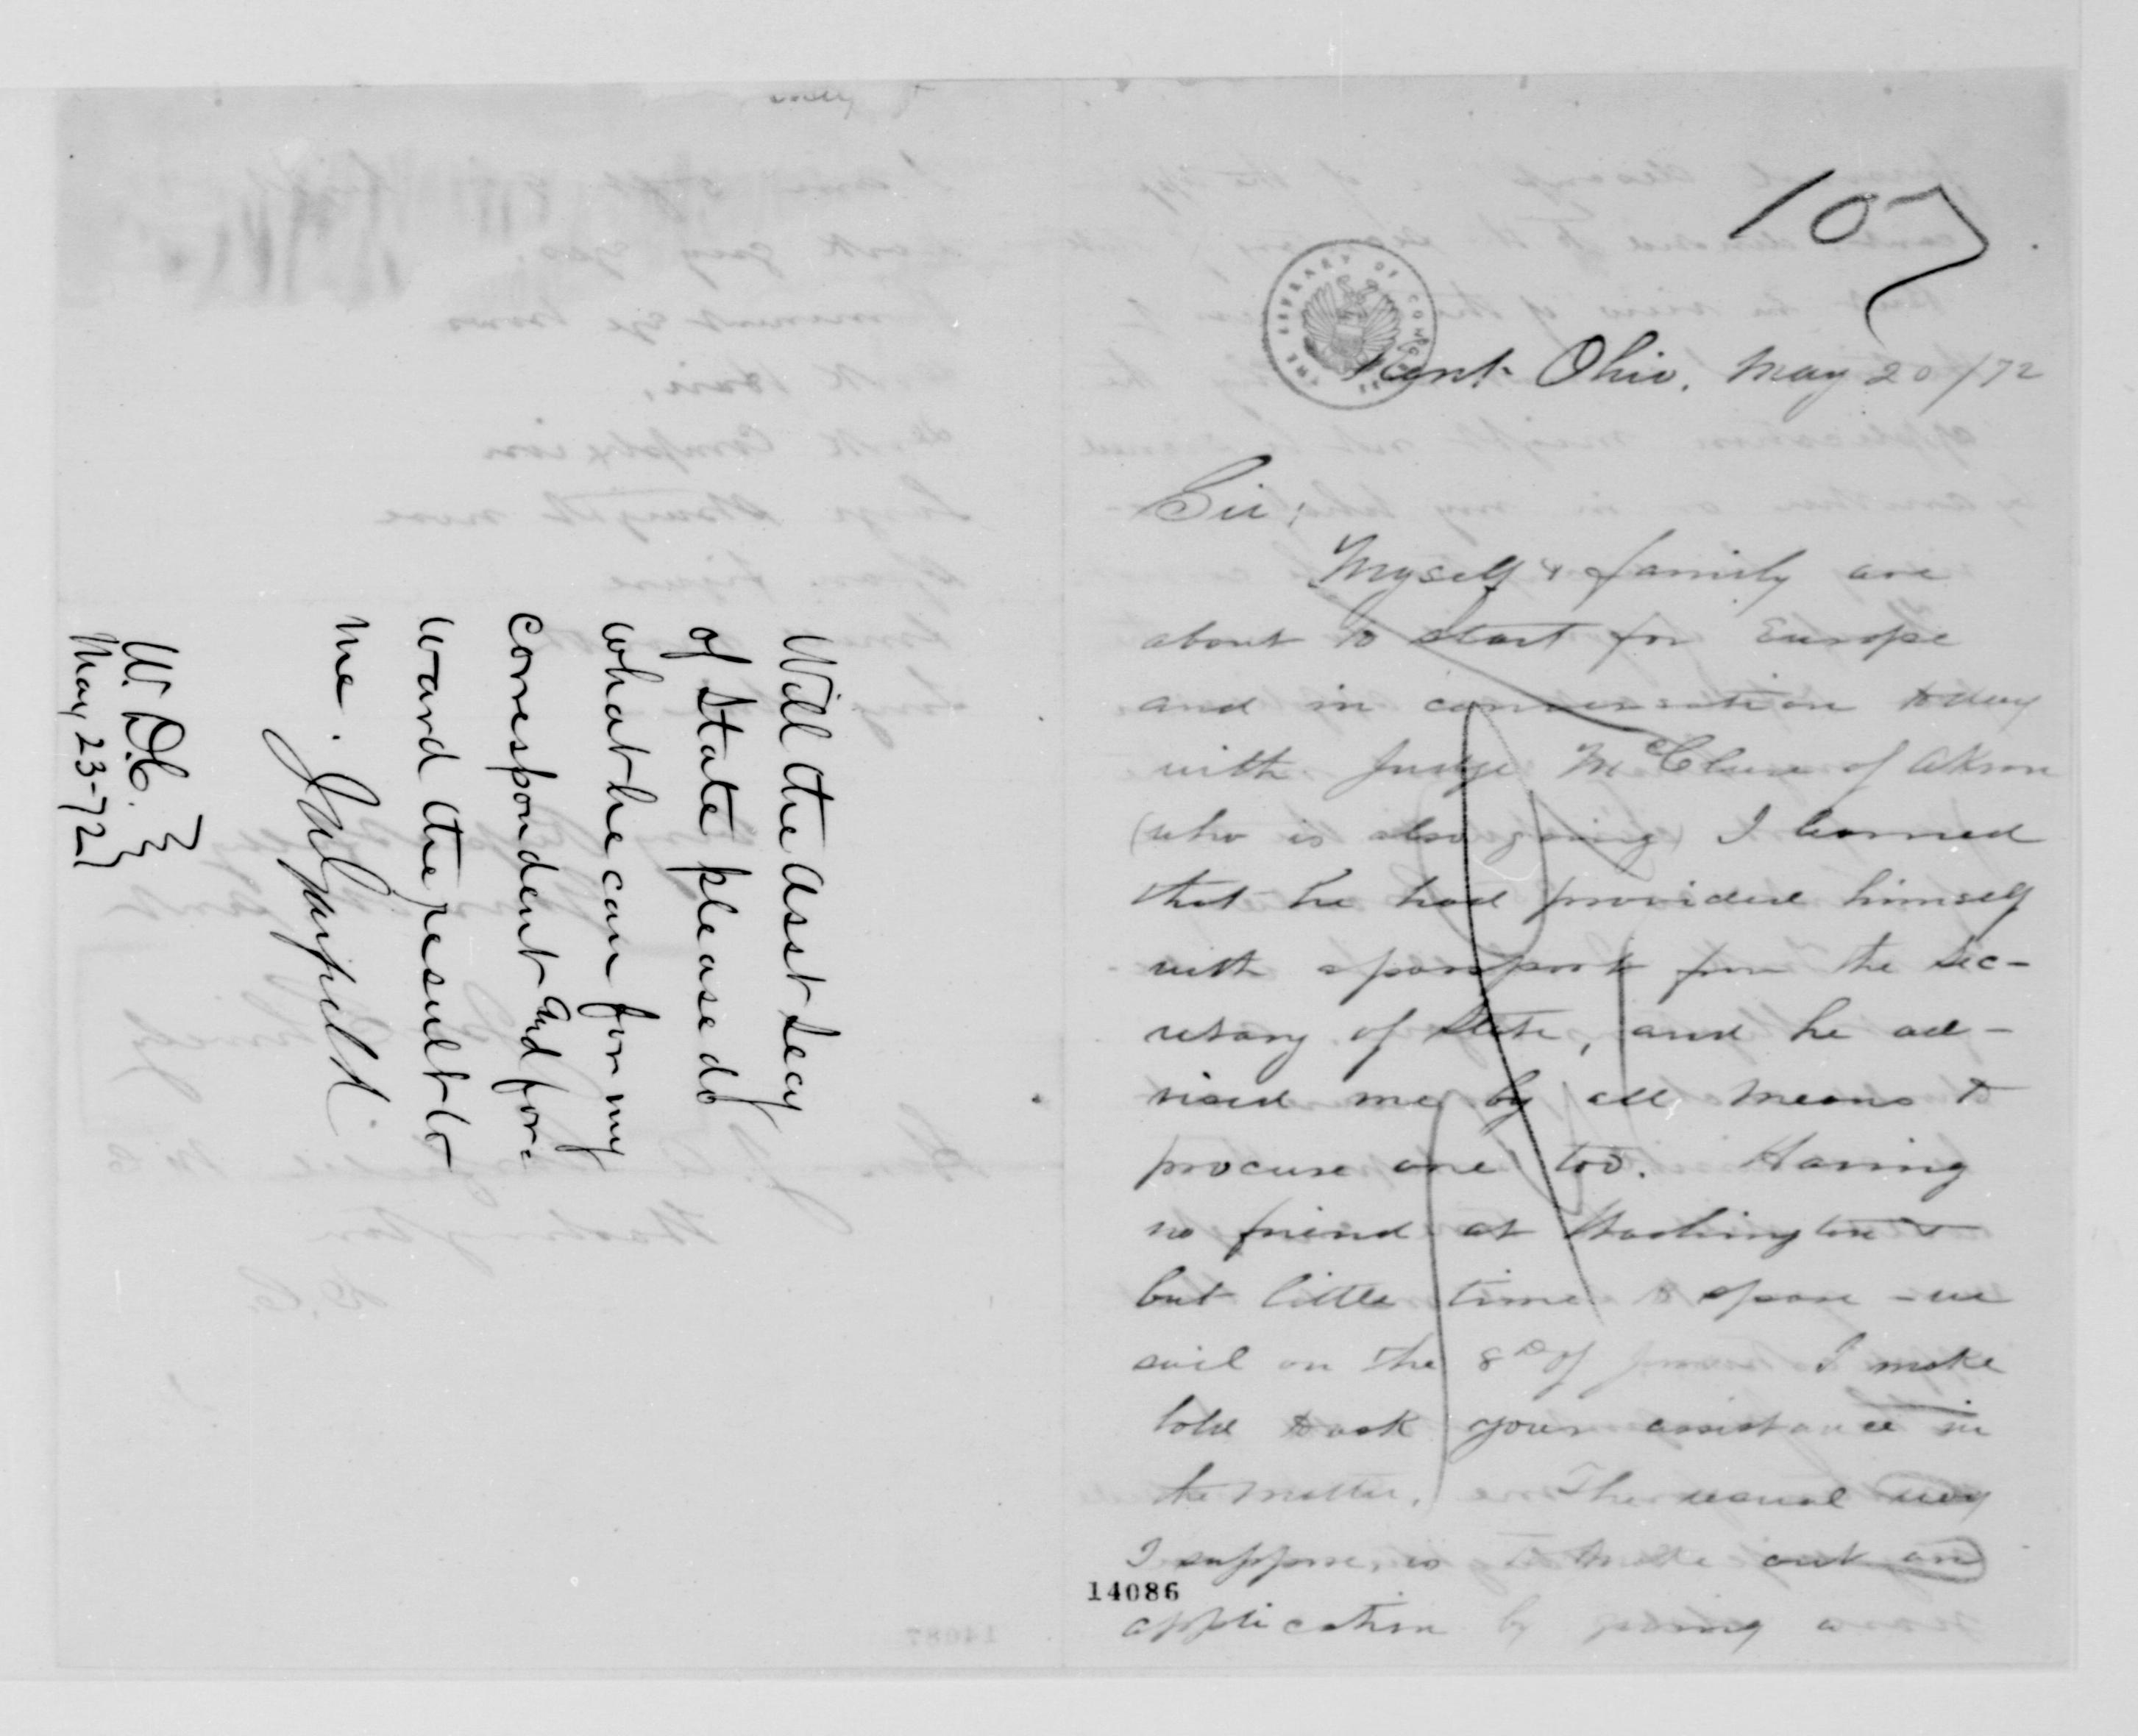 107
THE LIBRARY OF CONGRESS
Kent Ohio, May 20/72
Sir;
Myself & family are
about to start for Europe
and in conversation today
with Judge McClure of Akron
(who is also going) I learned
that he had provided himself
with a passport from the Sec-
retary of State, and he ad-
vised me by all means to
procure one too. Having
no friend at Washington &
but little time to spare - we
sail on the 8th of June I make
bold to ask your assistance in
the matter. The usual way
I suppose, is to make out an
application by giving a
14086
Will the Asst Secy
of State please do
what he can for my
correspondent and for-
ward the result to
me. J A Garfield
W. D.C.
May 23-72